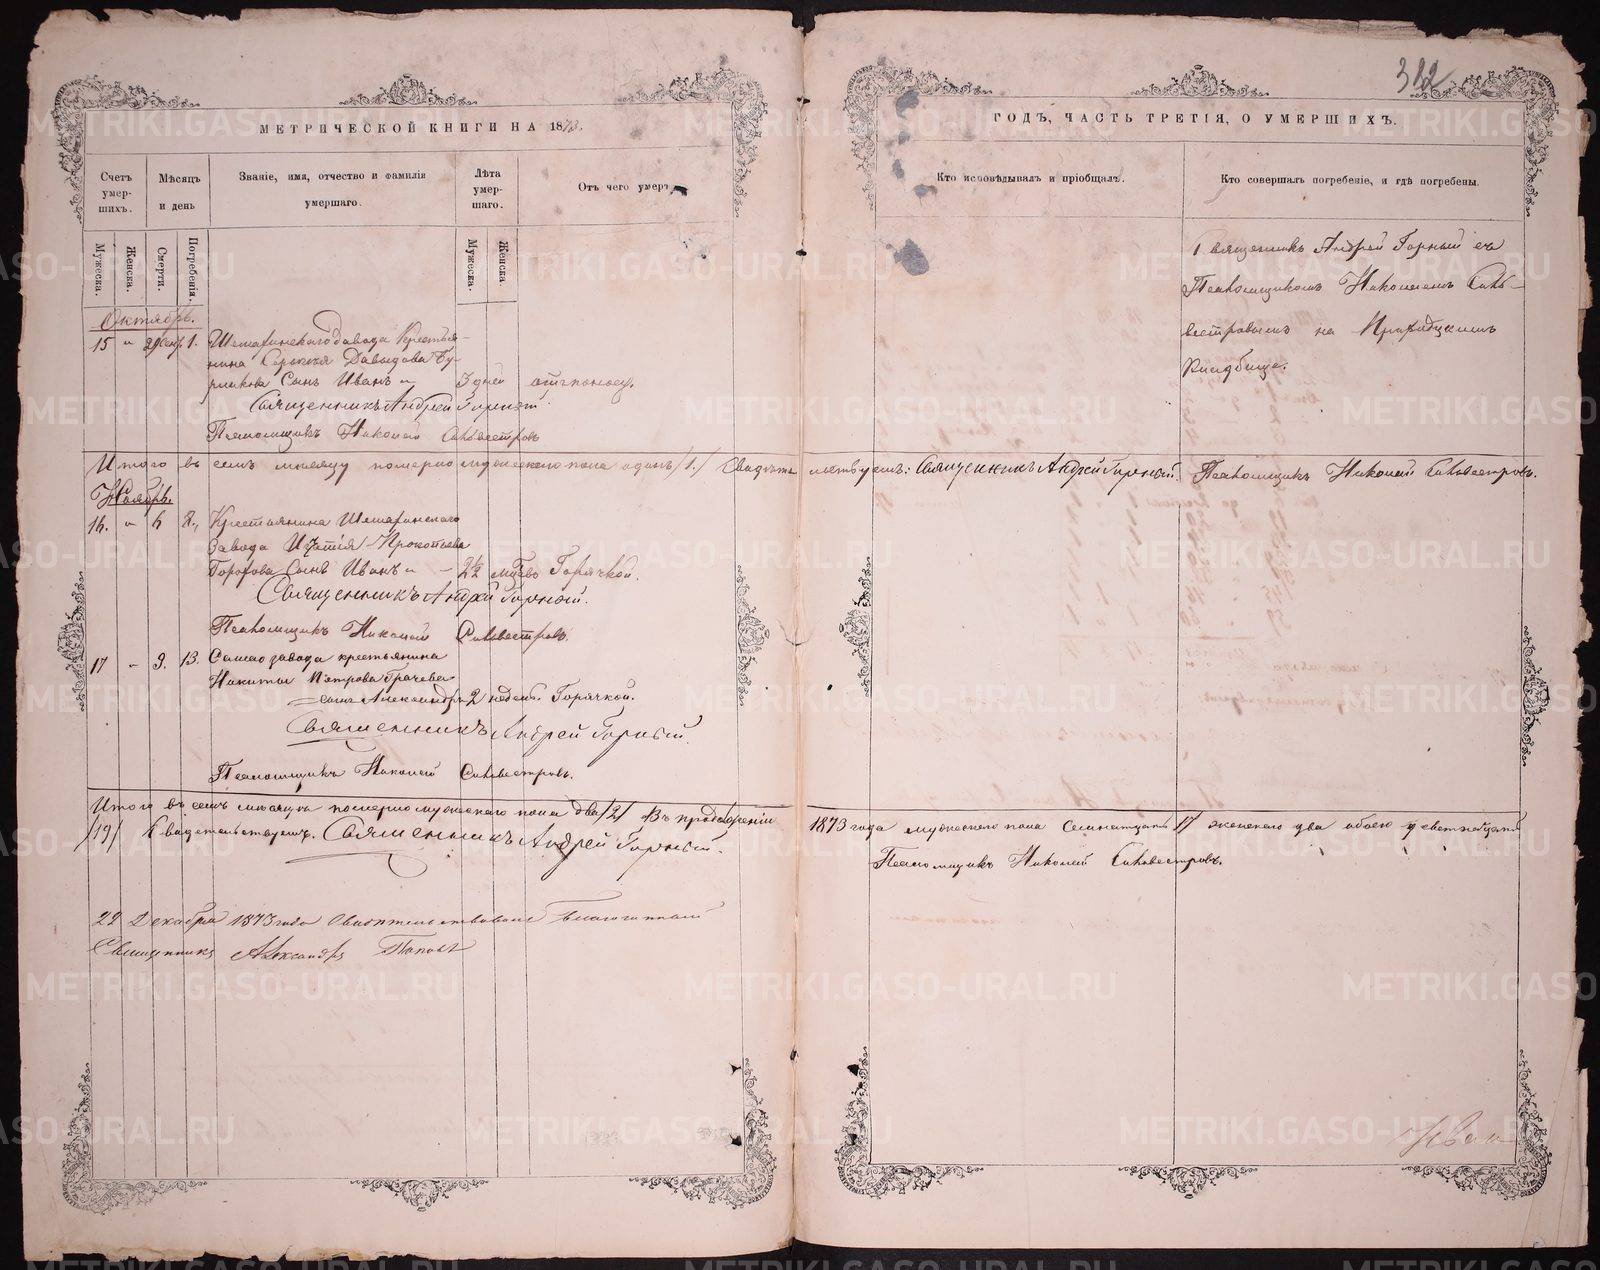 382
МЕТРИЧЕСКОЙ КНИГИ НА 1873.
ГОДЪ, ЧАСТЬ ТРЕТІЯ, О УМЕРШИХЪ.
Счетъ умерших.
Мѣсяцъ и день
Званіе, имя, отчество и фамилія умершаго.
Лѣта умершаго.
Отъ чего умеръ
Кто исповѣдывалъ и пріобщалъ.
Кто совершалъ погребеніе, и гдѣ погребены.
Мужеска.
Женска.
Смерти.
Погребенія.
Мужеска.
Женска.
Октябрь.
15 " 29 сен. 1. Шемахинскаго Завода Крестья-
нина Сергея Давыдова Бу-
рмакова Сынъ Иванъ 3 дней отъ поносу.
Священникъ Андрей Горный
Псаломщикъ Николай Сильвестровъ
Священникъ Андрей Горный съ
Псаломщикомъ Николаемъ Силь-
вестровымъ на Приходскомъ
Кладбище.
Итого въ семъ месяцу померло мужескаго пола одинъ /1./ Свидѣтельствуетъ: Священникъ Андрей Горный. Псаломщикъ Николай Сильвестровъ.
Ноябрь.
16. " 6 8., Крестьянина Шемахинскаго
Завода Игнатія Прокопьева
Сынъ Иванъ 2½ Горячкой.
Священникъ Андрей Горный.
Псаломщикъ Николай Сильвестровъ
17 " 9. 13. завода крестьянина
Никиты Петрова Грачева
сынъ Александръ 2 недель. Горячкой.
Священникъ Андрей Горный.
Псаломщикъ Николай Сильвестровъ.
Итого въ семъ месяцѣ померло мужескаго пола два /2/ Въ продолженіи 1873 года мужескаго пола семнатцать 17 женскаго два обоего девятнадцать
/19/ Свидетельствуютъ. Священникъ Андрей Горный. Псаломщикъ Николай Сильвестровъ.
22 Декабря 1873 года Свидѣтельствовалъ Благочинный
Священникъ Александръ Поповъ
METRIKI.GASO-URAL.RU